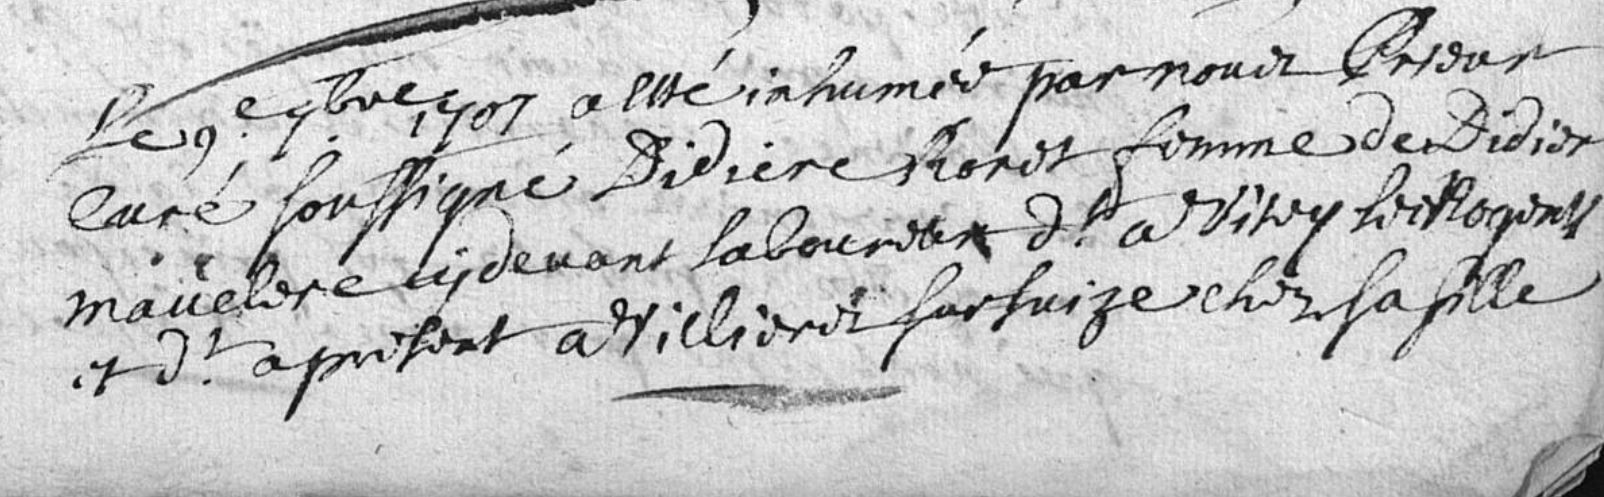 Le 9.e 7bre 1707 a esté inhumée par nous Prieur
Curé soussigné Didiere Roret femme de Didier
maüclere cydevant laboureur dt. a Vitry les Nogent
et dt. apresent a Villiers sur suize chez sa fille